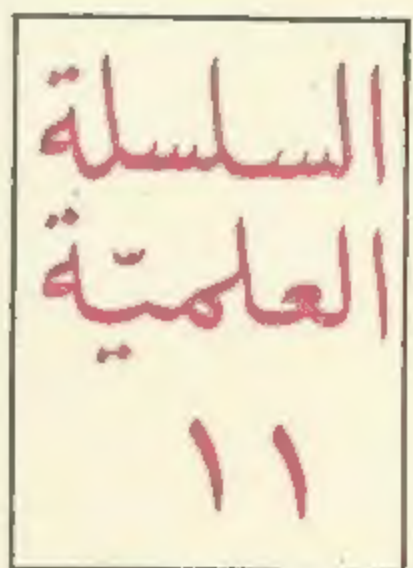 السلسلة
العلميّة
١١